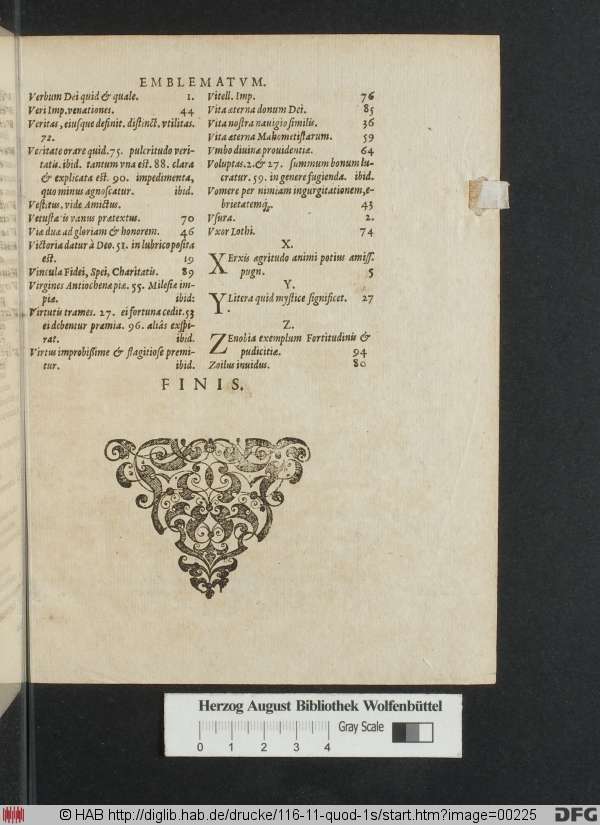 EMBLEMATVM.
Verbum Dei quid & quale. 1.
Veri Imp. venationes. 44
Veritas, eiusque definit. distinct. vtilitas.
72.
Veritate orare quid. 75. pulcritudo veri-
tatis. ibid. tantum vna est. 88. clara
& explicata est. 90. impedimenta,
quo minus agnoscatur. ibid.
Vestitus. vide Amictus.
Vetustatis vanus prætextus. 70
Viæ duæ ad gloriam & honorem. 46
Victoria datur à Deo. 51. in lubrico posita
est. 19
Vincula Fidei, Spei, Charitatis. 89
Virgines Antiochenæ piæ. 55. Milesiæ im-
piæ. ibid:
Virtutis trames. 27. ei fortuna cedit. 53
ei debentur præmia. 96. aliàs exspi-
rat. ibid.
Virtus improbissime & flagitiose premi-
tur. ibid.
Vitell. Imp. 76
Vita æterna donum Dei. 85
Vita nostra nauigio similis. 36
Vita æterna Mahometistarum. 59
Vmbo diuinæ prouidentiæ. 64
Voluptas. 2. & 27. summum bonum lu-
cratur. 59. in genere fugienda. ibid.
Vomere per nimiam ingurgitationem, e-
brietatemq́;. 43
Vsura. 2.
Vxor Lothi. 74
X.
XErxis ægritudo animi potius amiss.
pugn. 5
Y.
YLitera quid mystice significet. 27
.
Z.
ZEnobia exemplum Fortitudinis &
pudicitiæ. 94
Zoilus inuidus. 80
FINIS.
Herzog August Bibliothek Wolfenbüttel
Gray Scale
0 1 2 3 4
© HAB http://diglib.hab.de/drucke/116-11-quod-1s/start.htm?image=00225
DFG